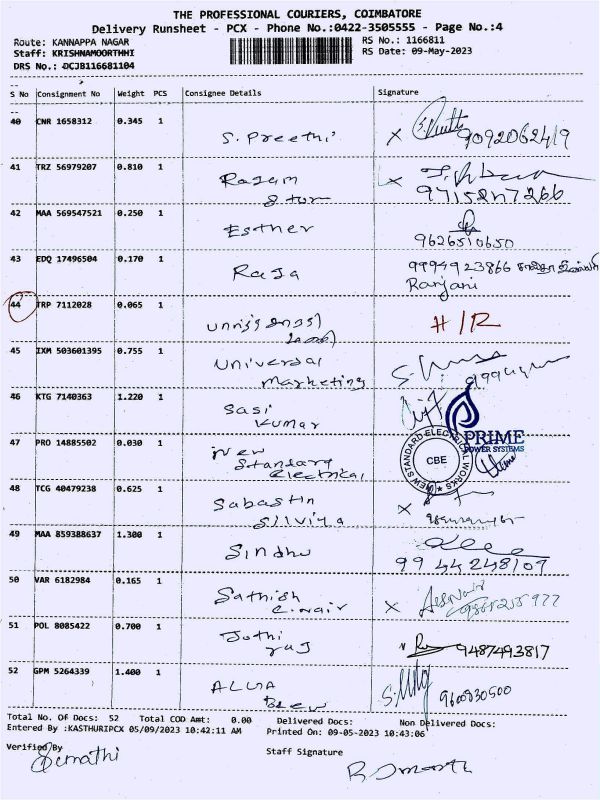 THE PROFESSIONAL COURIERS, COIMBATORE
Delivery Runsheet - PCX - Phone No.:0422-3505555 - Page No.:4
Route: KANNAPPA NAGAR RS No.: 1166811
Staff: KRISHNAMOORTHHI RS Date: 09-May-2023
DRS No.: DCJB116681104
S No Consignment No Weight PCS Consignee Details Signature
40 CNR 1658312 0.345 1
S. Preethi X 9092062419
41 TRZ 56979207 0.810 1
Rajam X
Stor 9715247266
42 MAA 569547521 0.250 1
Esther 9626510650
43 EDQ 17496504 0.170 1
Raja 9994923866
Ranjani
44 TRP 7112028 0.065 1
H/R
45 IXM 503601395 0.755 1
Universal
Marketing
46 KTG 7140363 1.220 1
Sasi
Kumar
PRIME
POWER SYSTEMS
47 PRO 14885502 0.030 1
New
Standard
Electrical
NEW STANDARD ELECTRICAL WORKS
CBE
48 TCG 40479238 0.625 1
Sabastin X
Silviya
49 MAA 859388637 1.300 1
Sindhu
99 44 248107
50 VAR 6182984 0.165 1
Sathish X
C. Nair
51 POL 8085422 0.700 1
Jothi 9487493817
raj
52 GPM 5264339 1.400 1
9600930500
Total No. Of Docs: 52 Total COD Amt: 0.00 Delivered Docs: Non Delivered Docs:
Entered By :KASTHURIPCX 05/09/2023 10:42:11 AM Printed On: 09-05-2023 10:43:06
Verified By Staff Signature